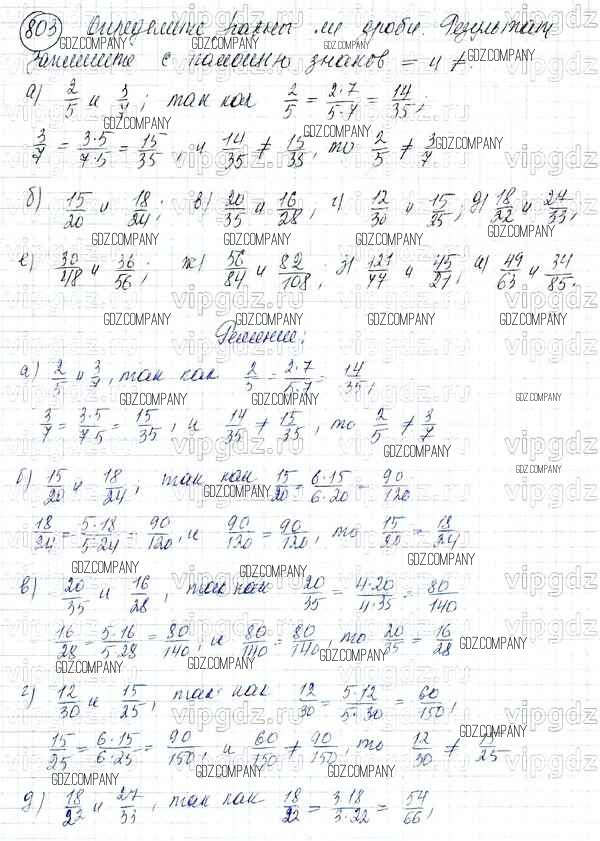 803 Определите равны ли дроби. Результат
запишите с помощью знаков = и ≠.
а) 2/5 и 3/7; так как 2/5 = 2·7/5·7 = 14/35;
3/7 = 3·5/7·5 = 15/35, и 14/35 ≠ 15/35, то 2/5 ≠ 3/7.
б) 15/20 и 18/24; в) 20/35 и 16/28; г) 12/30 и 15/25; д) 18/22 и 27/33;
е) 30/48 и 36/56; ж) 56/84 и 82/108; з) 121/77 и 45/27; и) 49/63 и 34/85.
Решение:
а) 2/5 и 3/7, так как 2/5 = 2·7/5·7 = 14/35,
3/7 = 3·5/7·5 = 15/35, и 14/35 ≠ 15/35, то 2/5 ≠ 3/7
б) 15/20 и 18/24; так как 15/20 = 6·15/6·20 = 90/120
18/24 = 5·18/5·24 = 90/120, и 90/120 = 90/120, то 15/20 = 18/24
в) 20/35 и 16/28, так как 20/35 = 4·20/4·35 = 80/140
16/28 = 5·16/5·28 = 80/140, и 80/140 = 80/140, то 20/35 = 16/28
г) 12/30 и 15/25, так как 12/30 = 5·12/5·30 = 60/150,
15/25 = 6·15/6·25 = 90/150, и 60/150 ≠ 90/150, то 12/30 ≠ 15/25
д) 18/22 и 27/33, так как 18/22 = 3·18/3·22 = 54/66,